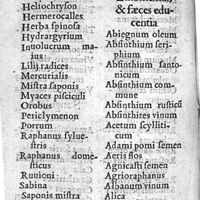 Heliochryson
Hermerocalles
Herba spinosa
Hydrargyrium
Inuolucrum ma
ius
Lilij radices
Mercurialis
Mistra saponis
Myaces pisciculi
Orobus
Periclymenon
Porrum
Raphanus sylue
stris
Raphanus dome
sticus
Ruuioni
Sabina
Saponis mistra
& fæces edu
centia
Abiegnum oleum
Absinthium seri
phium
Absinthium santo
nicum
Absinthium com
mune
Absinthium rusticũ
Absinthites vinum
Acetum scylliti
cum
Adami pomi semen
Aeris flos
Agnicasti semen
Agrioraphanus
Albanum vinum
Alica